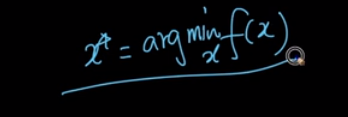 x* = arg min_x f(x)